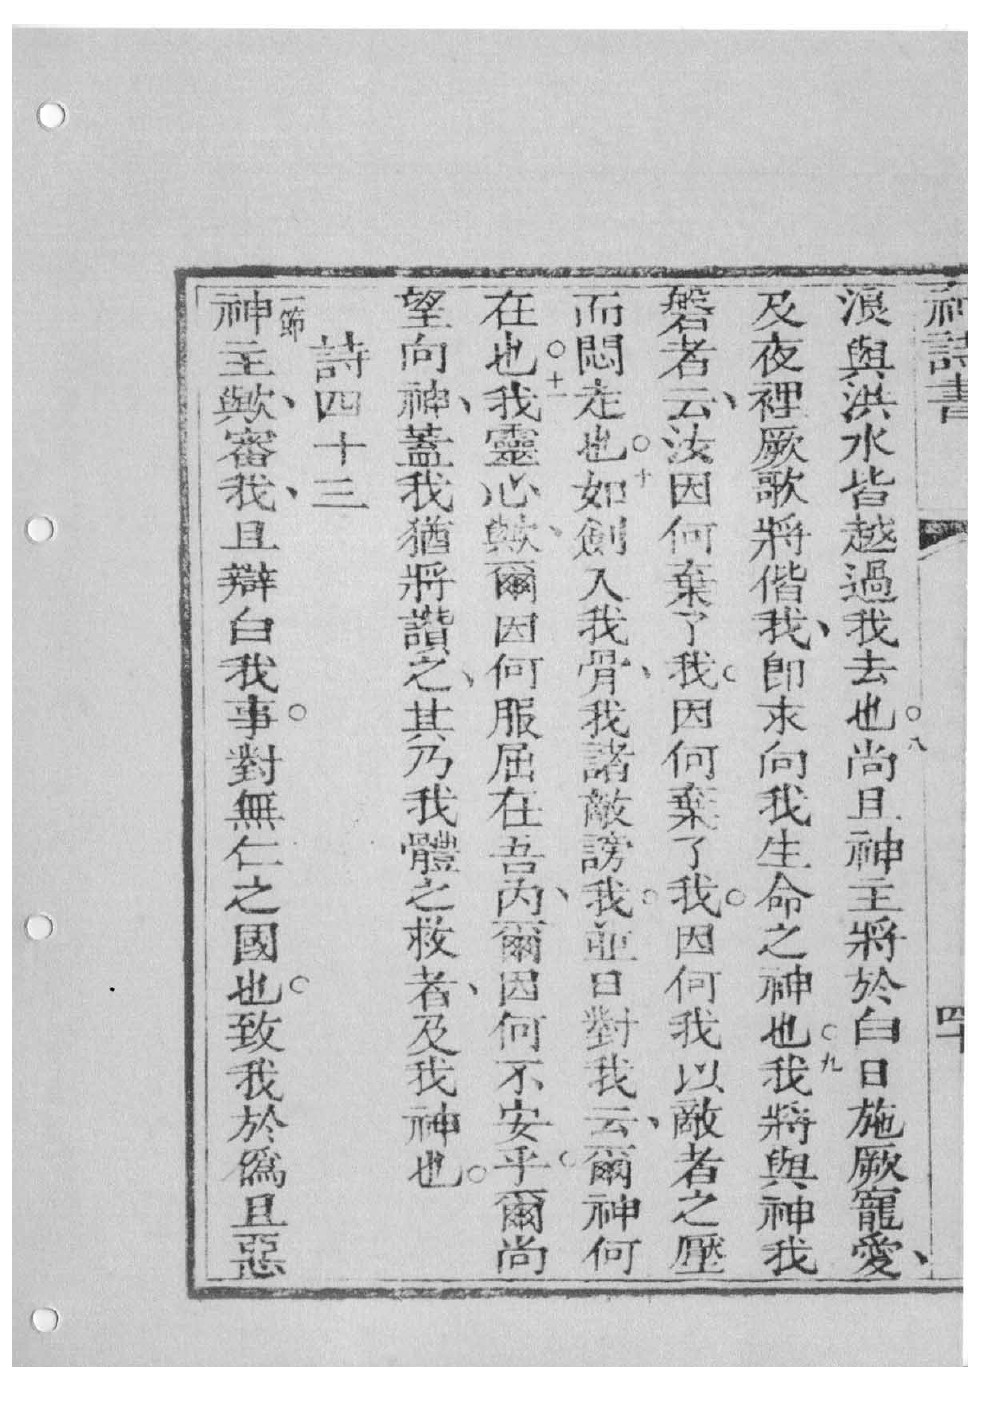 神詩書 四十
浪與洪水皆越過我去也。八尚且神主將於白日施厥寵愛、
及夜裡厥歌將偕我、即求向我生命之神也。九我將與神我
磐者云、汝因何棄了我。因何棄了我。因何我以敵者之壓
而悶走也。十如劍入我骨、我諸敵謗我。並日對我云、爾神何
在也。十一我靈心歟、爾因何服屈在吾內、爾因何不安乎。爾尚
望向神、蓋我猶將讚之、其乃我體之救者、及我神也。
詩四十三
一節神主歟、審我、且辯白我事。對無仁之國也。致我於僞且惡